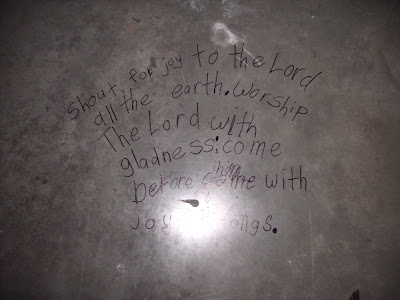 Shout for joy to the Lord
all the earth. Worship
The Lord with
gladness: come
before him come with
joy songs.